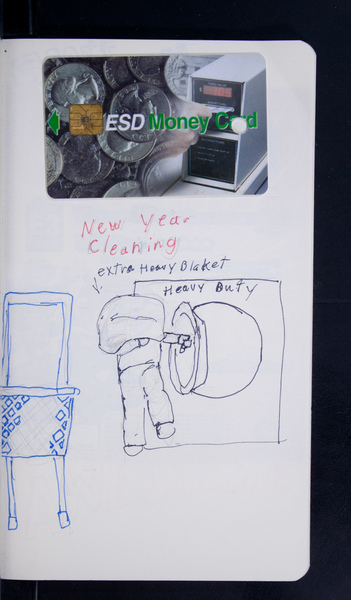 ESD Money Card
New Year
Cleaning
extra Heavy Blaket
Heavy Duty